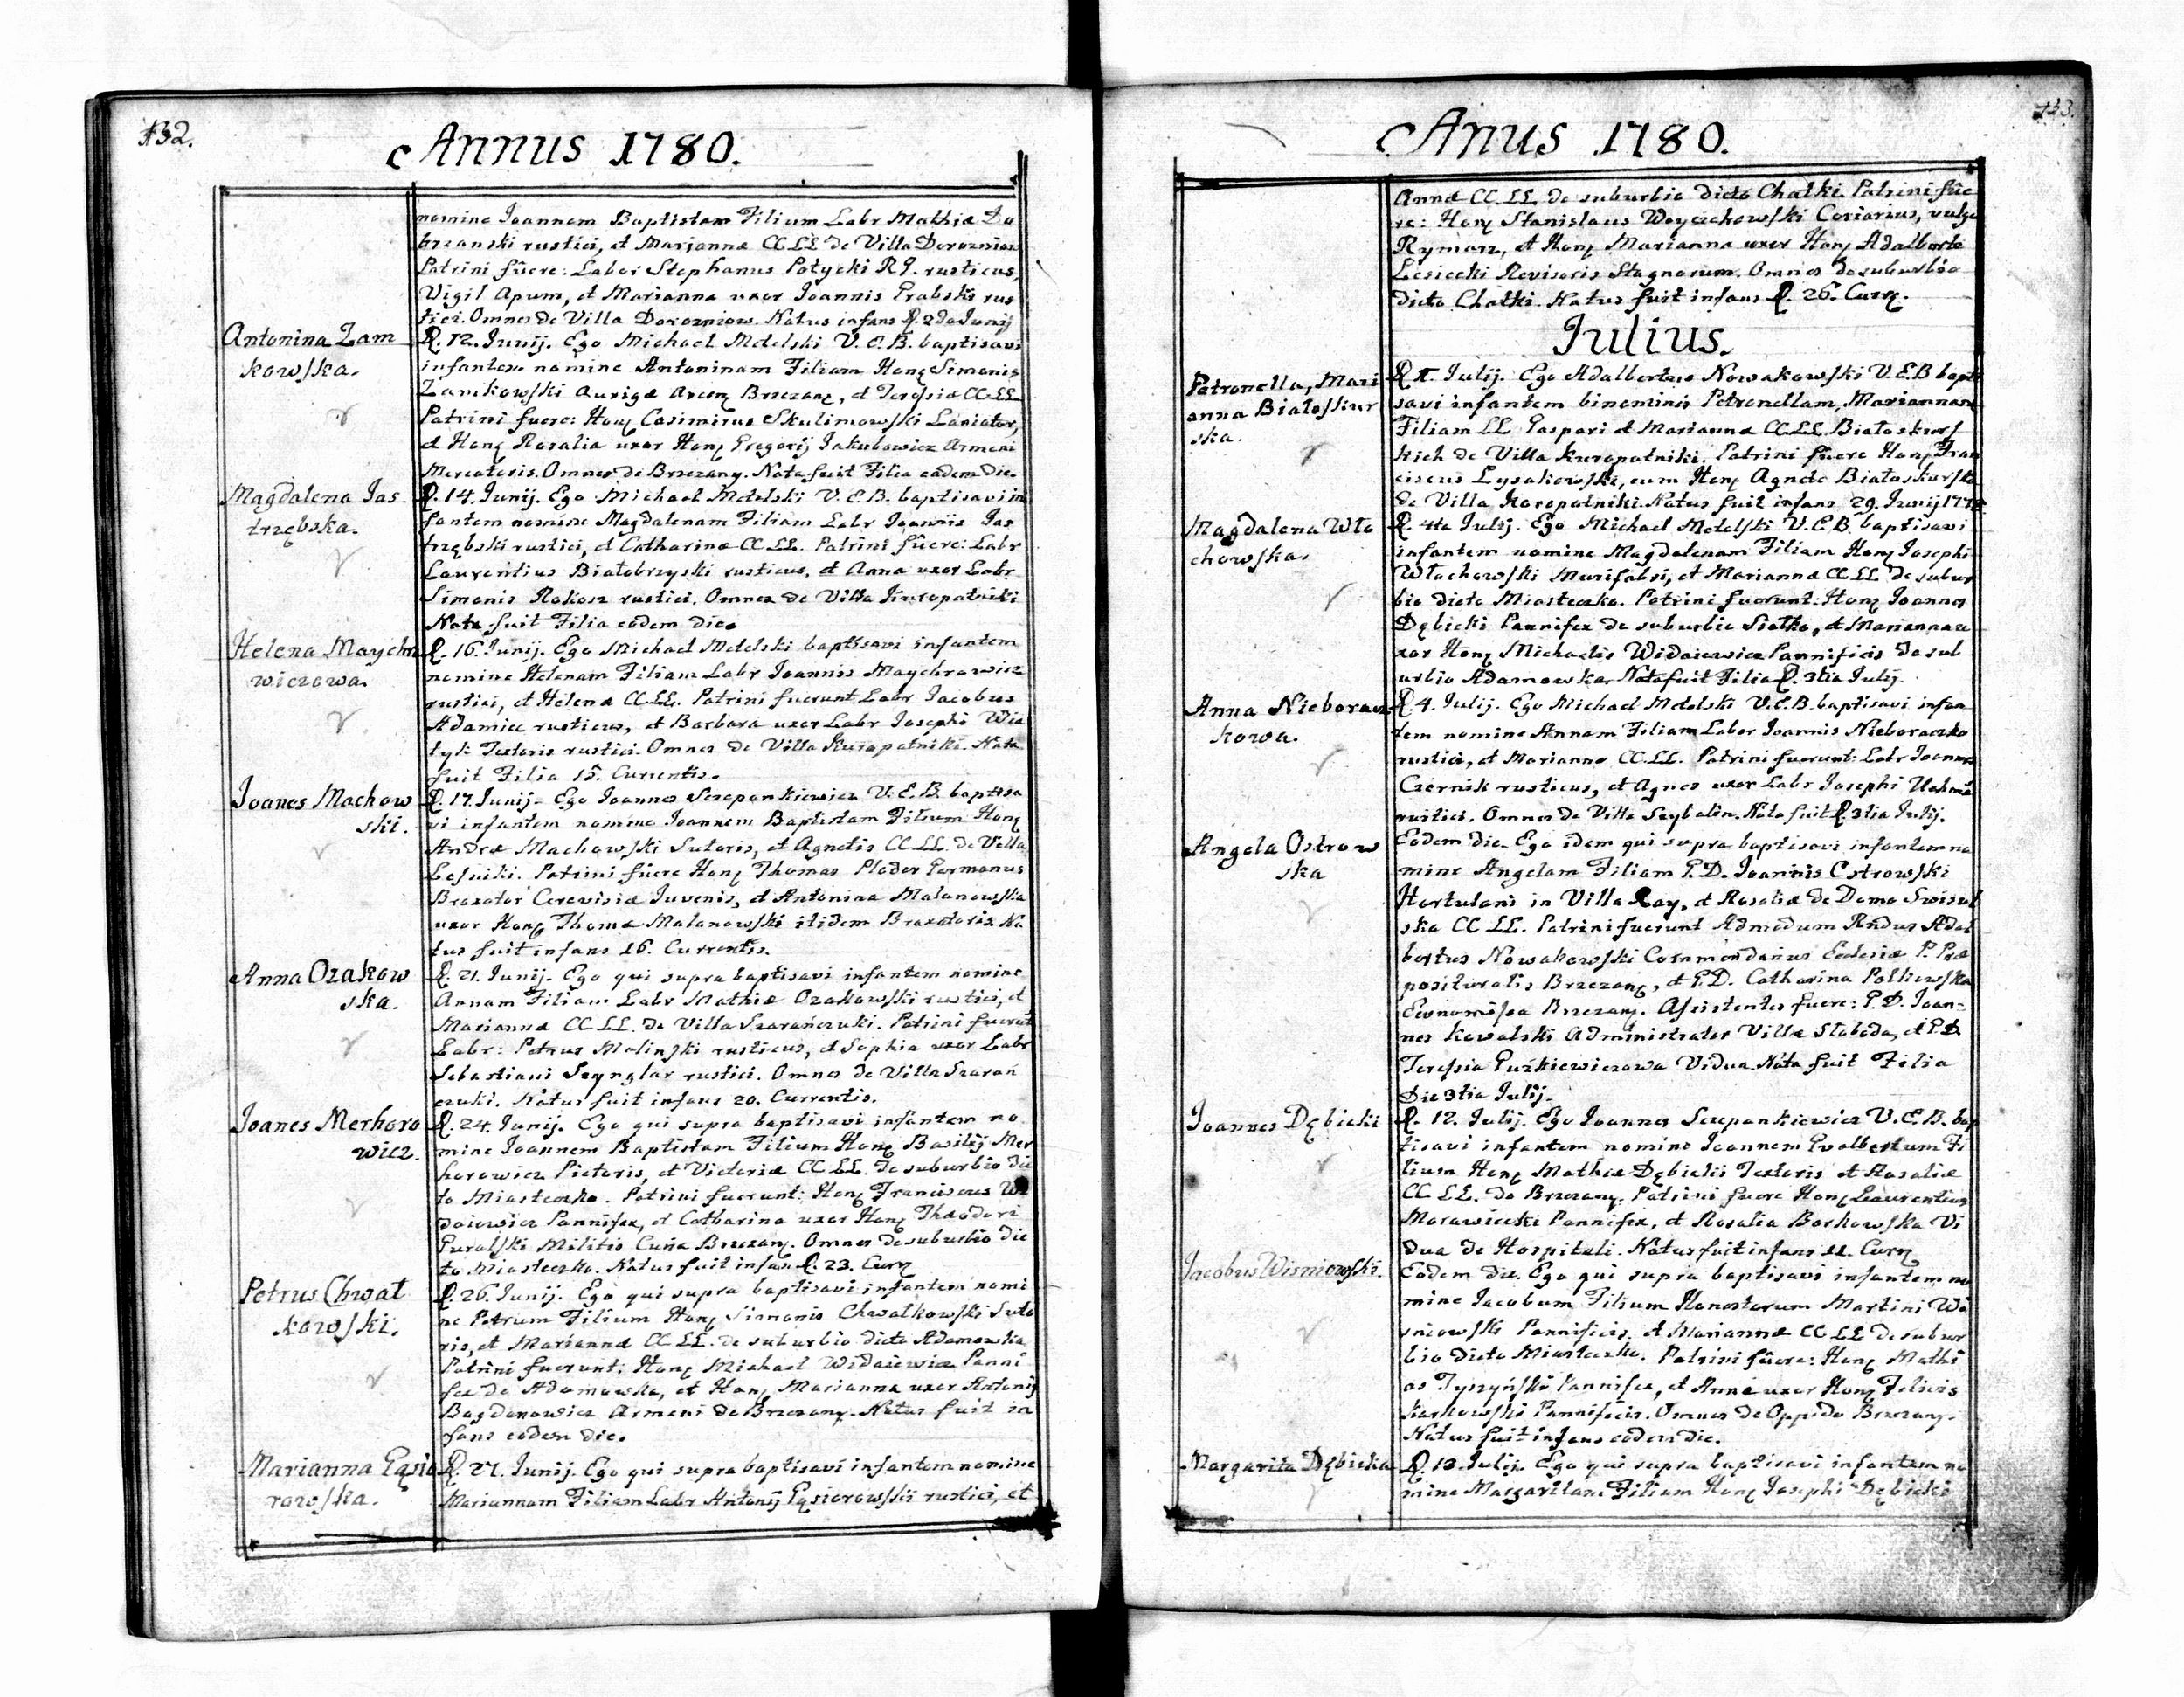 132.
Annus 1780.
nomine Joannem Baptistam Filium Labr Mathiæ Do
brzanski rustici, et Mariannæ CC LL de Villa Dorozniow
Patrini fûere: Labor Stephanus Potycki R9. rusticus,
Vigil Apum, et Marianna uxor Joannis Grabski rus
tici. Omnes de Villa Dorozniow. Natus infans D. 2da Junij
Antonina Zam
kowska.
D. 12. Junij. Ego Michael Metelski V. E. B. baptisavi
infantem nomine Antoninam Filiam Hon Simonis
Zamkowski Aurigæ Arcen Brzezan, et Teresiæ CC LL
Patrini fuere: Hon Casimirus Skulimowski Laniator,
et Hon Rosalia uxor Hon Gregorij Jakubowicz Armeni
Mercatoris. Omnes de Brzezany. Nata fuit Filia eadem die.
Magdalena Jas
trzębska.
D. 14. Junij. Ego Michael Metelski V. E. B. baptisavi in
fantem nomine Magdalenam Filiam Labr Joannis Jas
trzębski rustici, et Catharinæ CC LL. Patrini fûere: Labr
Laurentius Białobrzyski rusticus, et Anna uxor Labr
Simonis Rokosz rustici. Omnes de Villa Kuropatniki
Nata fuit Filia eodem die.
Helena Maychro
wiczowa.
D. 16. Junij. Ego Michael Metelski baptisavi infantem
nomine Helenam Filiam Labr Joannis Maychrowicz
rustici, et Helenæ CC LL. Patrini fuerunt Labr Jacobus
Adamiec rusticus, et Barbara uxor Labr Josephi Wia
tyk Textoris rustici. Omnes de Villa Kuropatniki. Nata
fuit Filia 15. Currentis.
Joanes Machow
ski.
D. 17. Junij. Ego Joannes Sczepankiewicz V. E. B. baptisa
vi infantem nomine Joannem Baptistam Filium Hon
Andreæ Machowski Sutoris, et Agnetis CC LL. de Villa
Lesniki. Patrini fûere Hon Thomas Plader Germanus
Braxator Cerevisiæ Juvenis, et Antonina Malanowska
uxor Hon Thomæ Malanowski itidem Braxatoris. Na
tus fuit infans 16. Currentis.
Anna Ozakow
ska.
D. 21. Junij. Ego qui supra baptisavi infantem nomine
Annam Filiam Labr Mathiæ Ozakowski rustici, et
Mariannæ CC LL. de Villa Szarańczuki. Patrini fuerūt
Labr: Petrus Malinski rusticus, et Sophia uxor Labr
Sebastiani Szynglar rustici. Omnes de Villa Szarań
czuki. Natus fuit infans 20. Currentis.
Joanes Merhoro
wicz.
D. 24. Junij. Ego qui supra baptisavi infantem no
mine Joannem Baptistam Filium Hon Basilij Mer
horowicz Pictoris, et Victoriæ CC LL. de suburbio dic
to Miasteczko. Patrini fuerunt: Hon Franciscus Wi
daiewicz Pannifex, et Catharina uxor Hon Theodori
Guralski Militis Brzezan. Omnes de suburbio dic
to Miasteczko. Natus fuit infans D. 23. Curr
Petrus Chwał
kowski.
D. 26. Junij. Ego qui supra baptisavi infantem nomi
ne Petrum Filium Hon Simonis Chwałkowski Suto
ris, et Mariannæ CC LL. de suburbio dicto Adamowka
Patrini fuerunt: Hon Michael Widaiewicz Panni
fex de Adamowka, et Hon Marianna uxor Antonij
Bogdanowicz Armeni de Brzezany. Natus fuit in
fans eodem die.
Marianna Gąsio
rowska.
D. 27. Junij. Ego qui supra baptisavi infantem nomine
Mariannam Filiam Labr Antonij Gąsiorowski rustici, et
133.
Anus 1780.
Annæ CC LL. de suburbio dicto Chatki Patrini fûe
re: Hon Stanislaus Woyciechowski Coriarius, vulgo
Rymarz, et Hon Marianna uxor Hon Adalberti
Lesiecki Revisoris Stagnorum. Omnes de suburbio
dicto Chatki. Natus fuit infans D. 26. Curr.
Julius.
Petronella, Mari
anna Białoskur
ska.
D 1. Julij. Ego Adalbertus Nowakowski V. E. B bapti
savi infantem binominis Petronellam, Mariannam
Filiam LL Gaspari et Mariannæ CC LL. Białoskurs
kich de Villa Kuropatniki. Patrini fûere Hon Fran
ciscus Lysakowski, cum Hon Agnete Białoskurska
de Villa Kuropatniki. Natus fuit infans 29. Junij
Magdalena Wło
chowska.
D. 4ta Julij. Ego Michael Metelski V. E. B. baptisavi
infantem nomine Magdalenam Filiam Hon Josephi
Włochowski Murifabri, et Mariannæ CC LL de subur
bio dicto Miasteczko. Patrini fuerunt: Hon Joannes
Dębicki Pannifex de suburbio Siołko, et Marianna u
xor Hon Michaelis Widaiewicz Pannificis de sub
urbio Adamowka. Nata fuit Filia D. 3tia Julij.
Anna Nieboracz
kowa.
D. 4. Julij. Ego Michael Metelski V. E. B. baptisavi infan
tem nomine Annam Filiam Labor Joannis Nieboraczko
rustici, et Marianna CC LL. Patrini fuerunt: Labr Joannes
Czernik rusticus, et Agnes uxor Labr Josephi
rustici. Omnes de Villa Szybalin. Nata fuit D. 3tia Julij.
Angela Ostrow
ska
Eodem die. Ego idem qui supra baptisavi infantem no
mine Angelam Filiam G. D. Joannis Ostrowski
Hortulani in Villa Ray, et Rosaliæ de Domo Swisul
ska CC LL. Patrini fuerunt Admodum Rndus Adal
bertus Nowakowski Commendarius Ecclesiæ P. Præ
posituralis Brzezan, et G.D. Catharina Polkowska
Œconomissa Brzezan. Assistentes fuere: G. D. Joan=
nes Kowalski Administrator Villæ Słoboda, et G.D.
Teressia Guzkiewiczowa Vidua. Nata fuit Filia
Die 3tia Julij.
Joannes Dębicki
D. 12. Julij. Ego Joannes Sczepankiewicz V. E. B. bap
tisavi infantem nomine Joannem Gvalbertum Fi
lium Hon Mathiæ Dębicki Textoris et Rosaliæ
CC LL. de Brzezan. Patrini fuere Hon Laurentius
Morawiecki Pannifex, et Rosalia Borkowska Vi
dua de Hospitali. Natus fuit infans 11. Curr
Jacobus Wisniowski.
Eodem die. Ego qui supra baptisavi infantem no
mine Jacobum Filium Honestorum Martini Wi
sniowski Pannificis, et Mariannæ CC LL de subur
bio dicto Miasteczko. Patrini fûere: Hon Mathi
as Tyszyński Pannifex, et Anna uxor Hon Felicis
Karkowski Pannificis. Omnes de Oppido Brzezany.
Natus fuit infans eodem die.
Margarita Dębicka
D. 13. Julij. Ego qui supra baptisavi infantem no
mine Margaritam Filiam Hon Josephi Dębicki